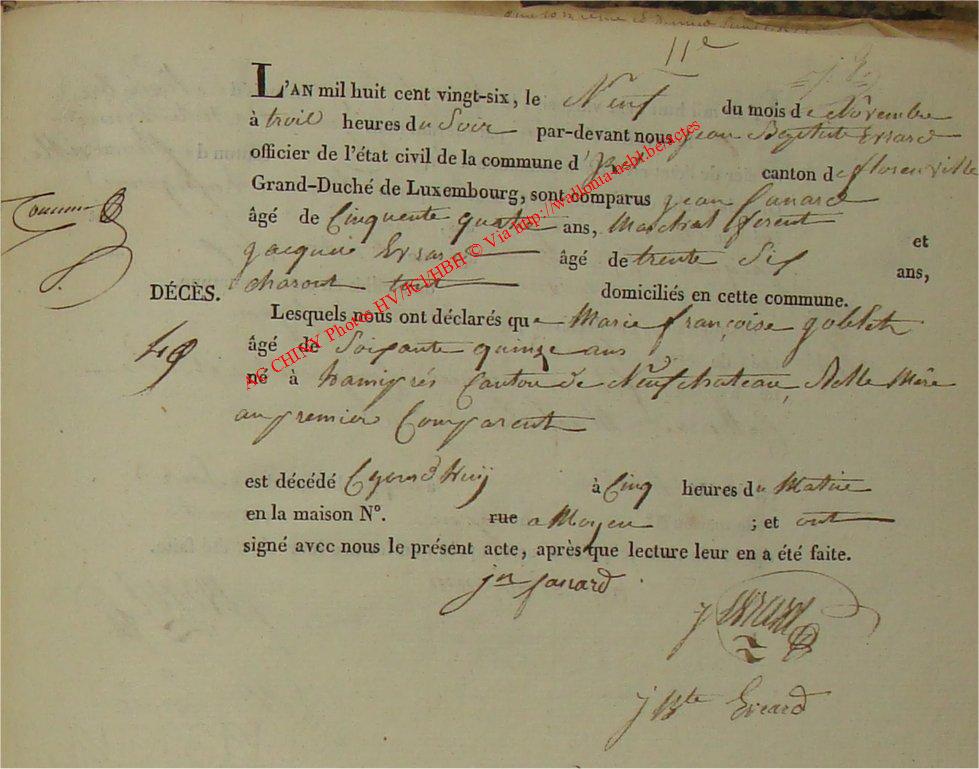 11e
L'AN mil huit cent vingt-six, le Neuf du mois de Novembre
à trois heures du Soir par-devant nous jean Baptiste Evrard
officier de l'état civil de la commune d' canton de florenville
Grand-Duché de Luxembourg, sont comparus jean fanard
âgé de Cinquente quatre ans, Marchal ferent
jacque Evrard âgé de trente Six et
ans,
charont tout domiciliés en cette commune.
DÉCÈS.
Lesquels nous ont déclarés que Marie françoise gobleth
49
âgé de Soixante quinze ans
né à hamiprés Canton de Neufchateau, Belle Mère
au premier Comparent
est décédé Cejourd'huij à Cinq heures du Matin
en la maison N°. rue a Moyen ; et ont
signé avec nous le présent acte, après que lecture leur en a été faite.
jn fanard
J Evrard
j Bte Evrard
AG CHINY Photos HV/JCl/HBH © Via http://wallonia-asbl.be/actes